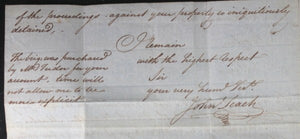 of the proceedings against your property so iniquitously
detained,
I remain
with the highest respect
Sir
your very humb Servt.
John Leach
The brig was purchased
by Mr. Yader for your
account. time will
not allow one to be
more explicit